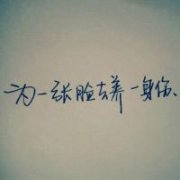 为一张脸去养一身伤、